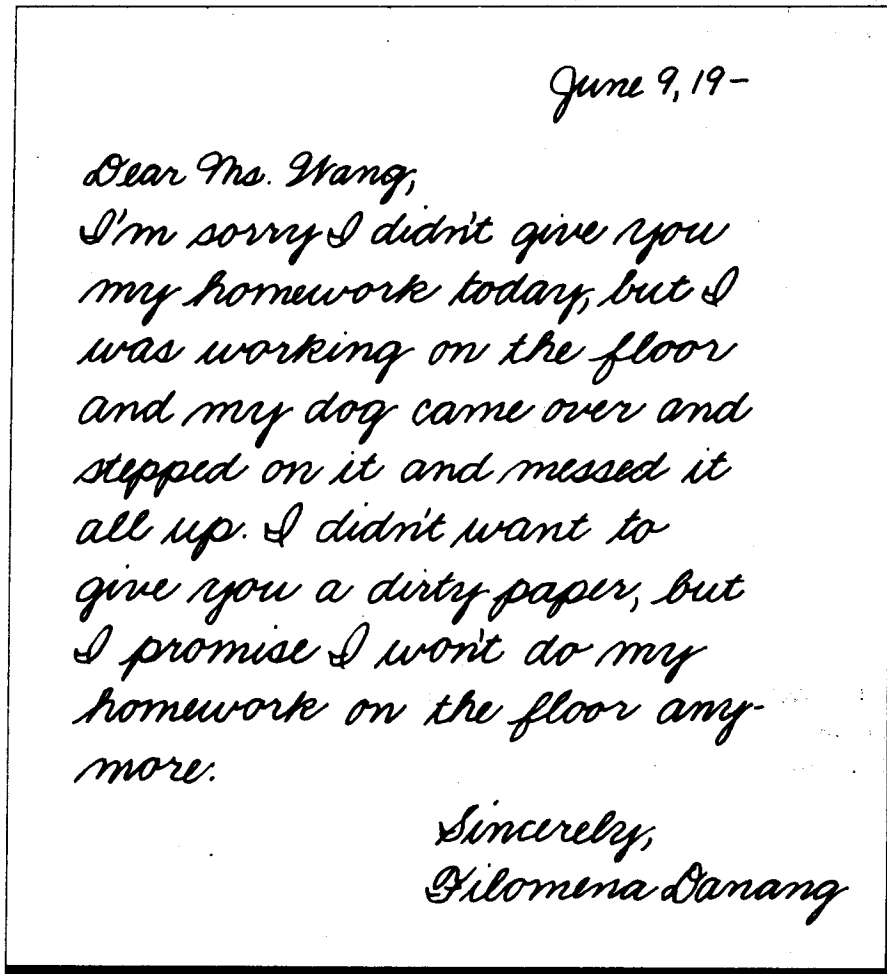 June 9, 19-
Dear Ms. Wang,
I'm sorry I didn't give you
my homework today, but I
was working on the floor
and my dog came over and
stepped on it and messed it
all up. I didn't want to
give you a dirty paper, but
I promise I won't do my
homework on the floor any-
more.
Sincerely,
Filomena Danang